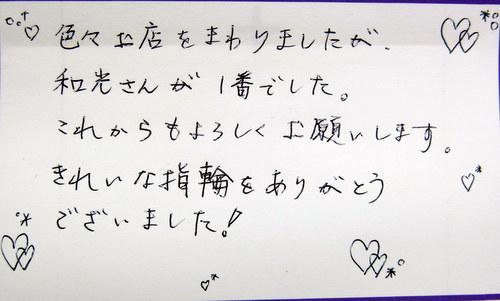 色々お店をまわりましたが、
和光さんが1番でした。
これからもよろしくお願いします。
きれいな指輪をありがとう
ございました!